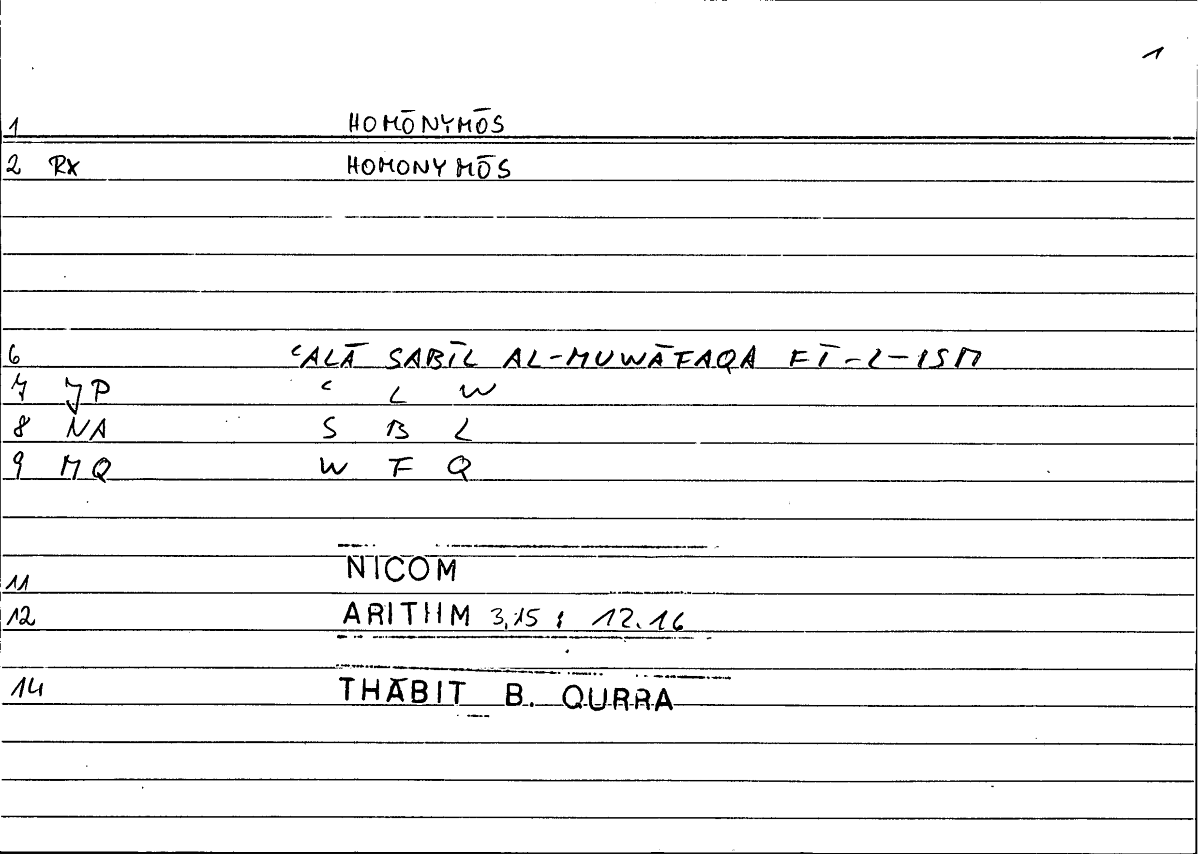 1
1 HOMŌNYMŌS
2 RX HOMONYMŌS
6 ʿALĀ SABĪL AL-MUWĀFAQA FĪ-L-ISM
7 JP ʿ L W
8 NA S B L
9 MQ W F Q
11 NICOM
12 ARITHM 3,15 ; 12.16
14 THĀBIT B. QURRA